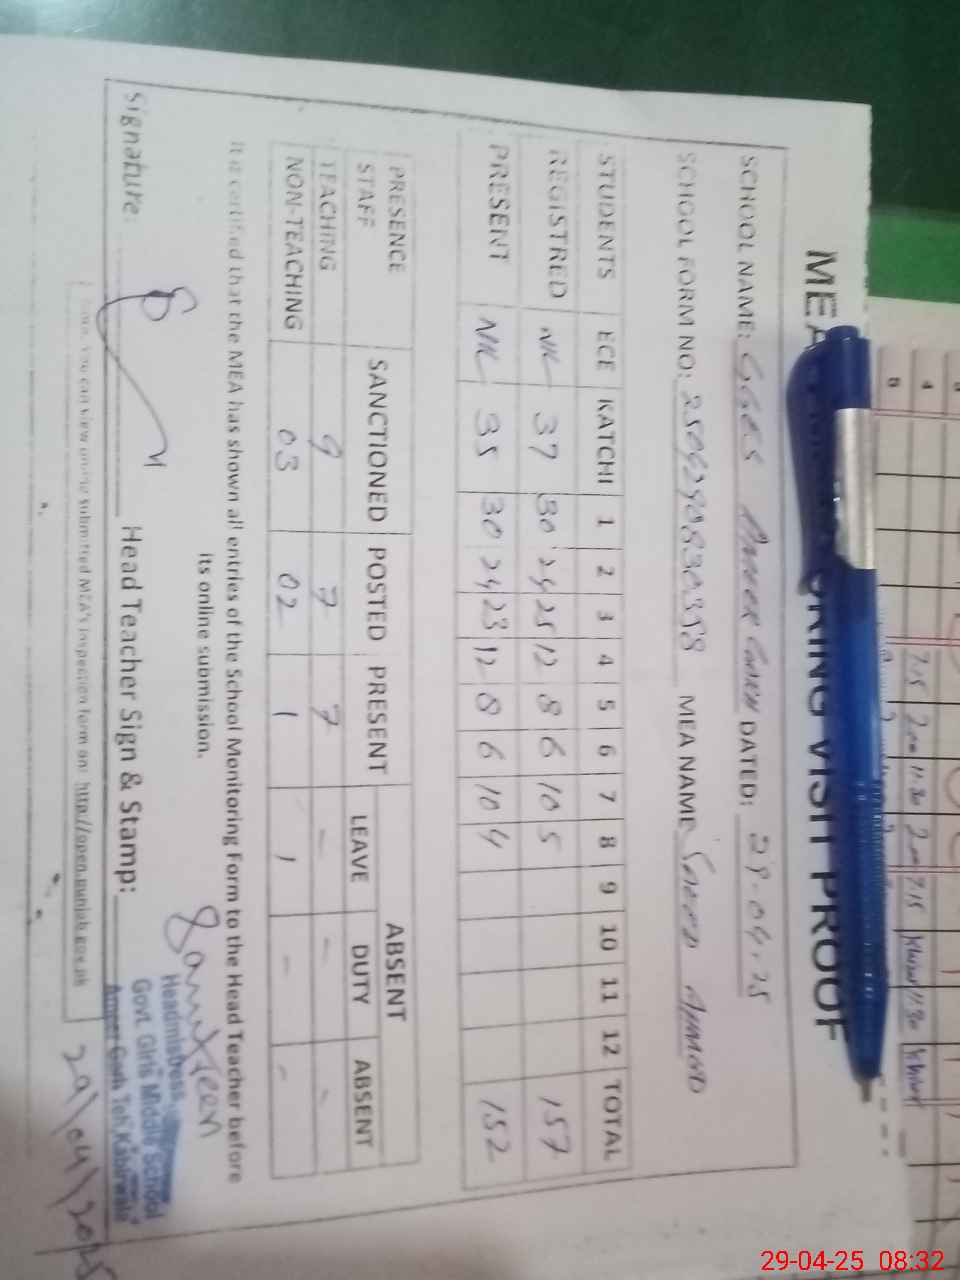 MEA MONITORING VISIT PROOF
SCHOOL NAME: GGES DATED: 29.04.25
SCHOOL FORM NO: MEA NAME Saeed Ahmad
STUDENTS ECE KATCHI 1 2 3 4 5 6 7 8 9 10 11 12 TOTAL
REGISTRED NIL 37 30 24 25 12 8 6 10 5 157
PRESENT NIL 35 30 24 23 12 8 6 10 4 152
PRESENCE ABSENT
STAFF SANCTIONED POSTED PRESENT LEAVE DUTY ABSENT
TEACHING 9 7 7 - - -
NON-TEACHING 03 02 1 1 - -
It is certified that the MEA has shown all entries of the School Monitoring Form to the Head Teacher before
its online submission.
Signature:
Head Teacher Sign & Stamp:
Headmistress
Govt. Girls Middle School
Teh. Kabirwala
29/04/2025
Note: You can view online submitted MEA's inspection form on: http://open.punjab.gov.pk
4 7.15 2.00 11.30 2.00 7.15 11.30
5
29-04-25 08:32